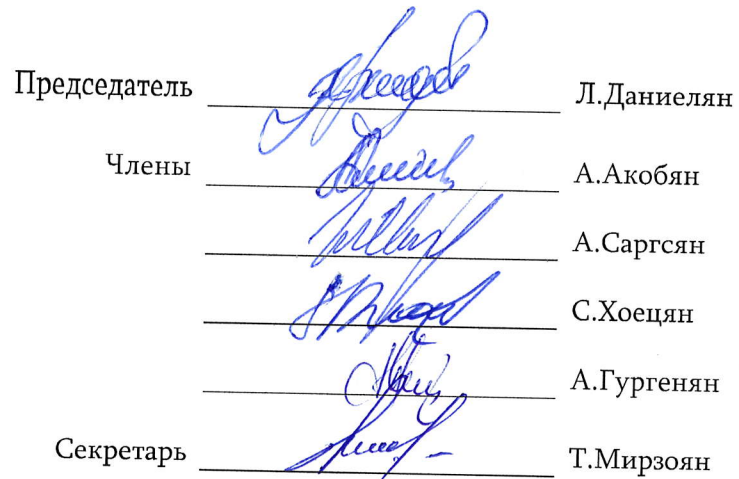 Председатель Л.Даниелян
Члены А.Акобян
А.Саргсян
С.Хоецян
А.Гургенян
Секретарь Т.Мирзоян